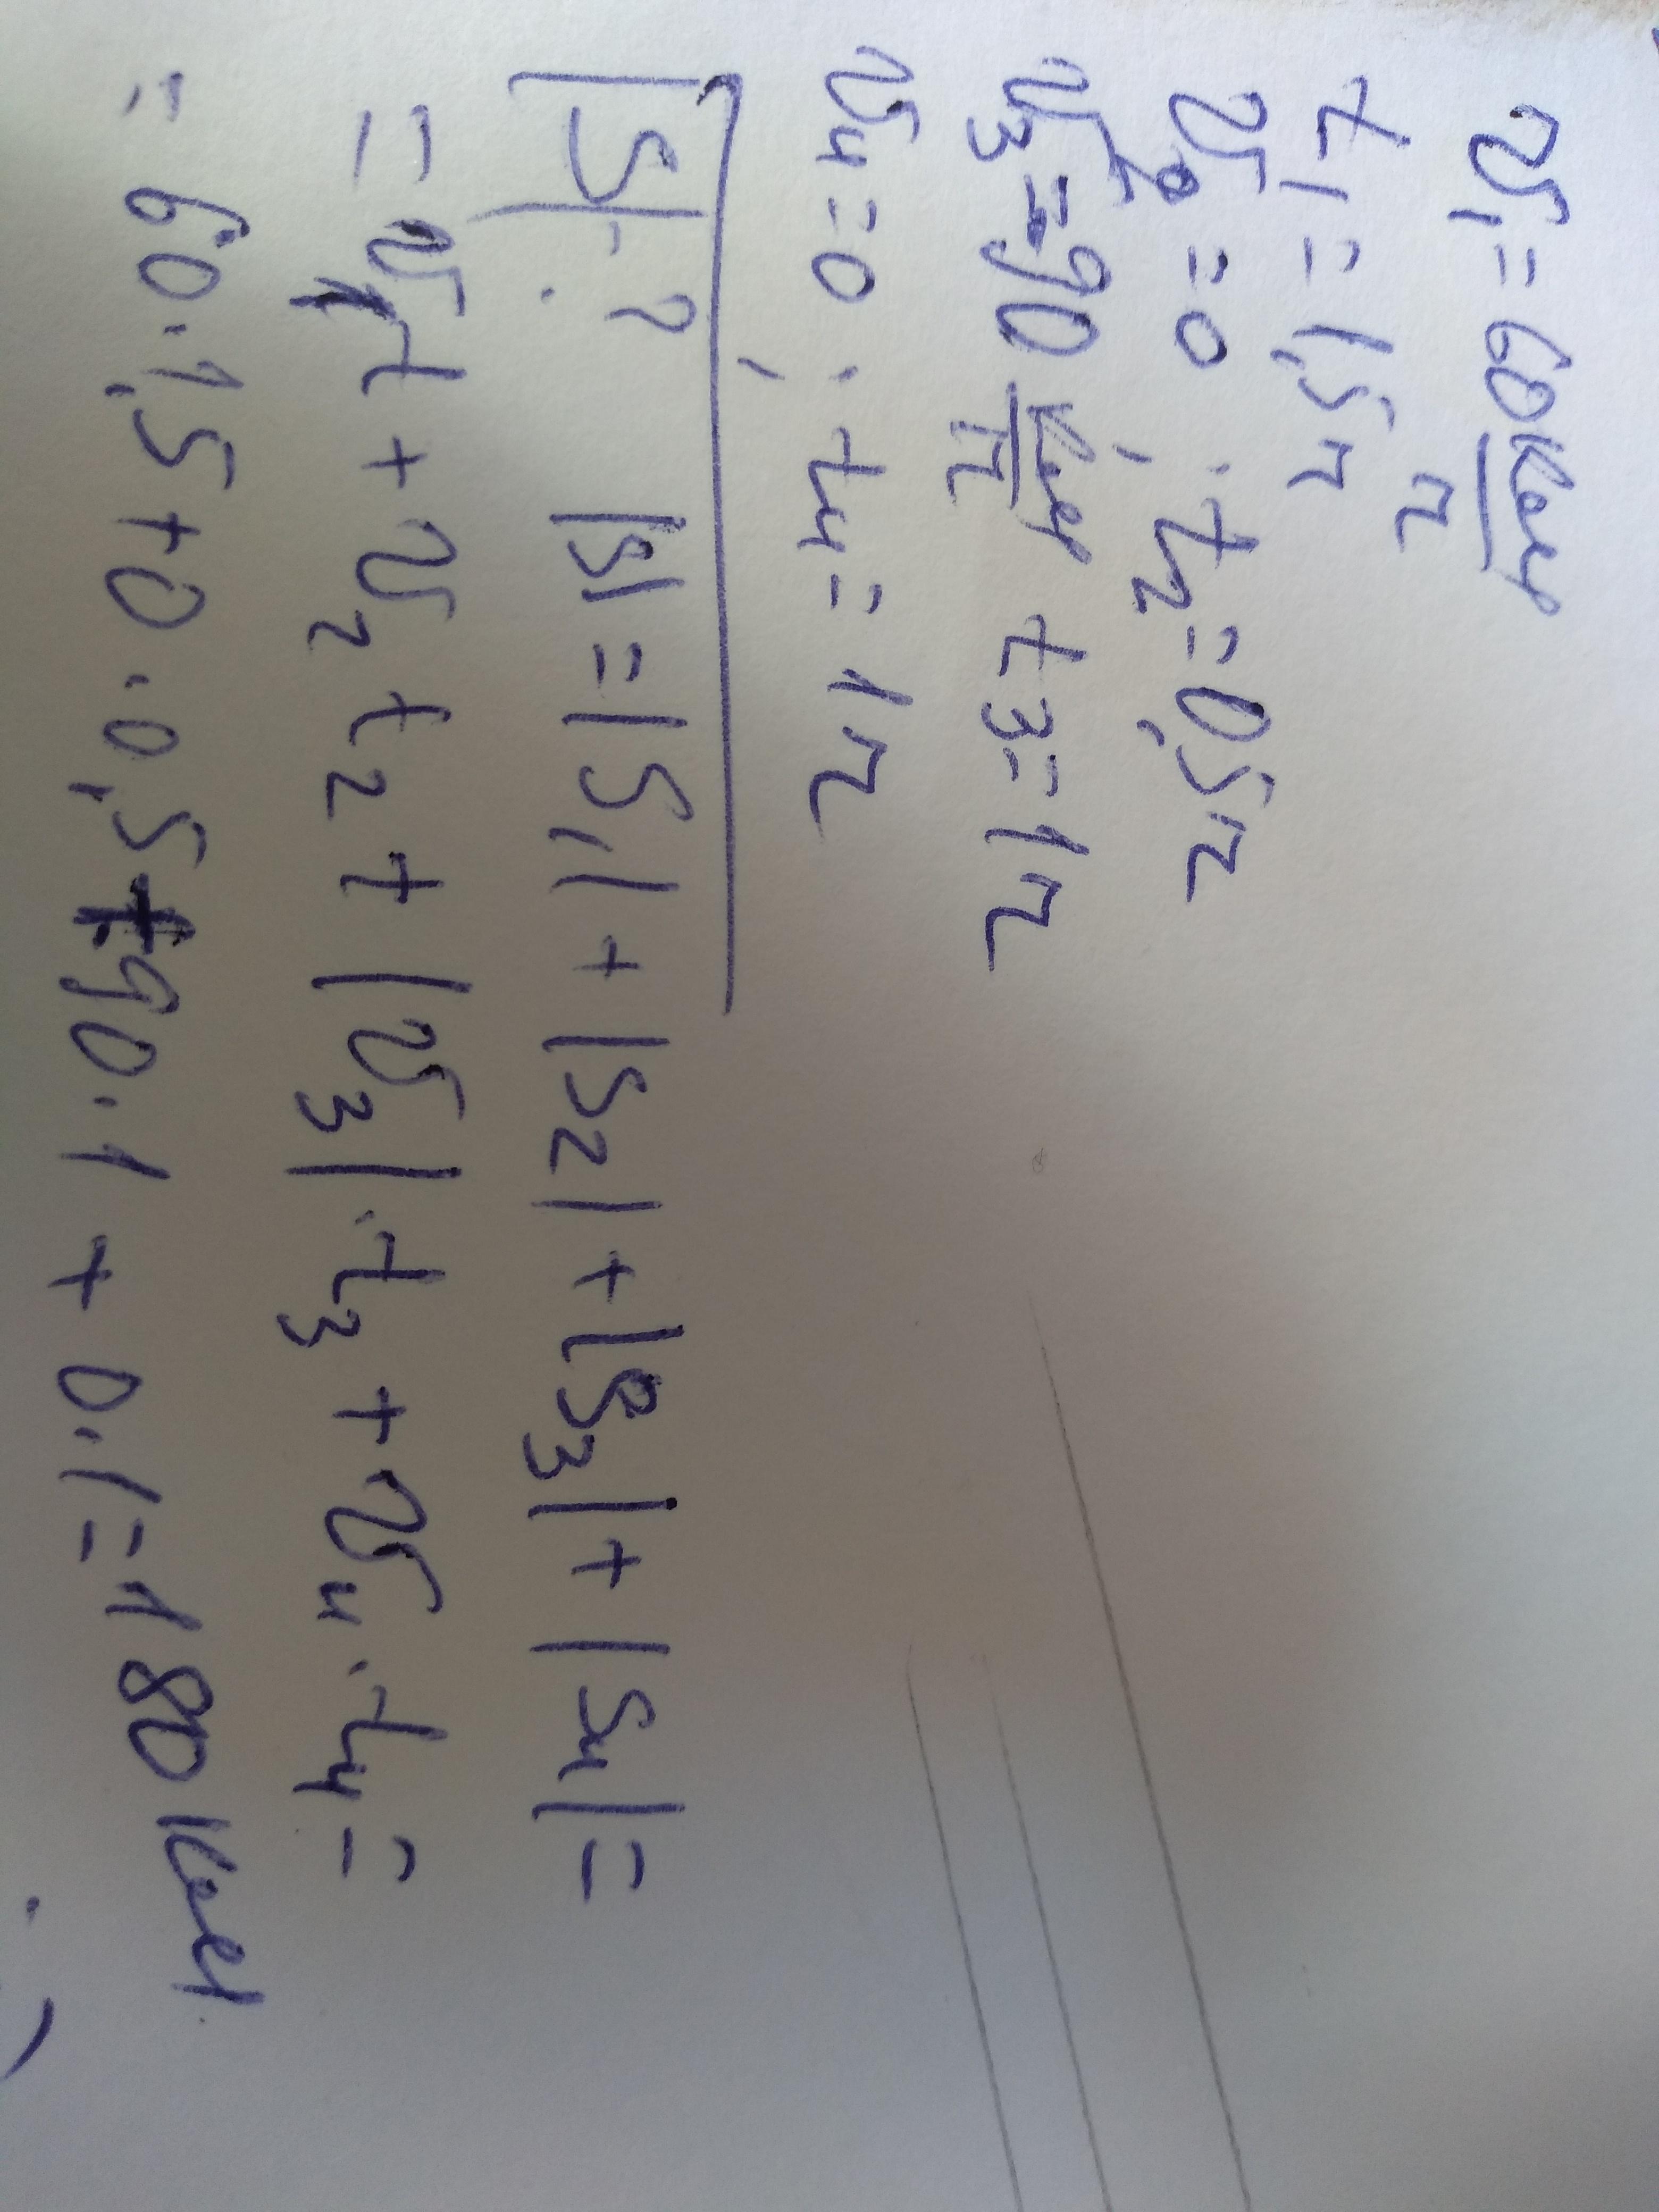 v₁ = 60 км/ч
t₁ = 1,5 ч
v₂ = 0; t₂ = 0,5 ч
v₃ = -90 км/ч t₃ = 1 ч
v₄ = 0; t₄ = 1 ч
|S| - ? |S| = |S₁| + |S₂| + |S₃| + |S₄| =
= v₁t + v₂ t₂ + |v₃| · t₃ + v₄ · t₄ =
= 60 · 1,5 + 0 · 0,5 + 90 · 1 + 0 · 1 = 180 км